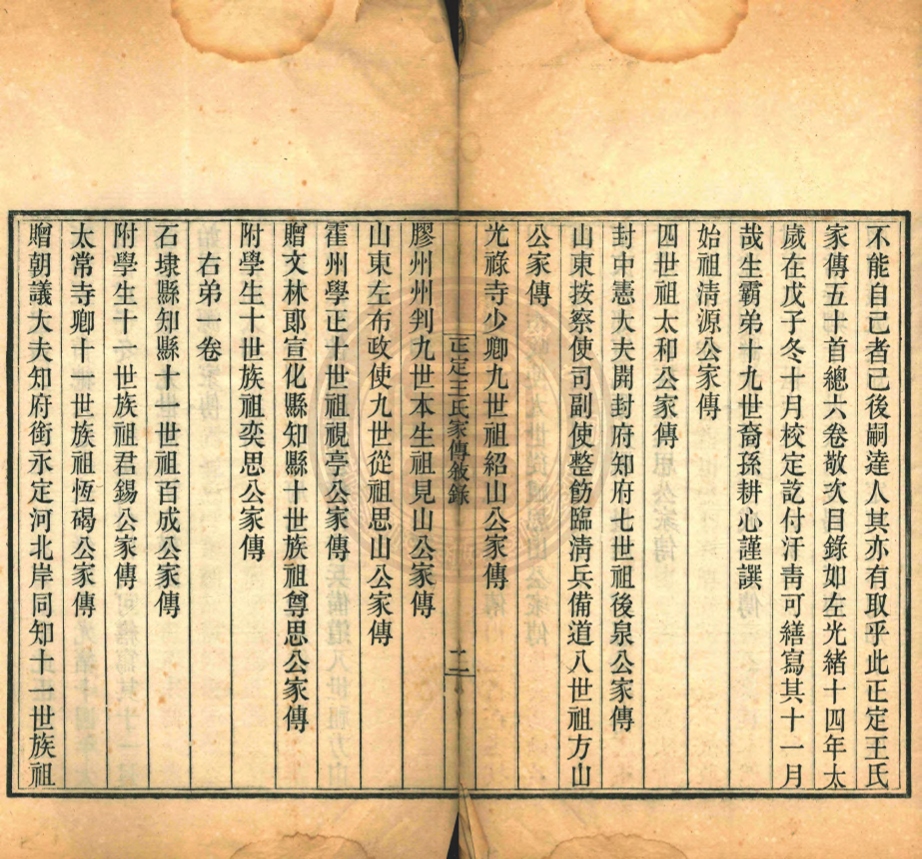 不能自已者已後嗣達人其亦有取乎此正定王氏
家傳五十首總六卷敬次目錄如左光緒十四年太
歲在戊子冬十月校定訖付汗靑可繕寫其十一月
哉生霸弟十九世裔孫耕心謹譔
始祖淸源公家傳
四世祖太和公家傳
封中憲大夫開封府知府七世祖後泉公家傳
山東按察使司副使整飭臨淸兵備道八世祖方山
公家傳
光祿寺少卿九世祖紹山公家傳
正定王氏家傳敘錄
二
膠州州判九世本生祖見山公家傳
山東左布政使九世從祖思山公家傳
霍州學正十世祖視亭公家傳
贈文林郎宣化縣知縣十世族祖尊思公家傳
附學生十世族祖奕思公家傳
右弟一卷
石埭縣知縣十一世祖百成公家傳
附學生十一世族祖君錫公家傳
太常寺卿十一世族祖恆碣公家傳
贈朝議大夫知府銜永定河北岸同知十一世族祖